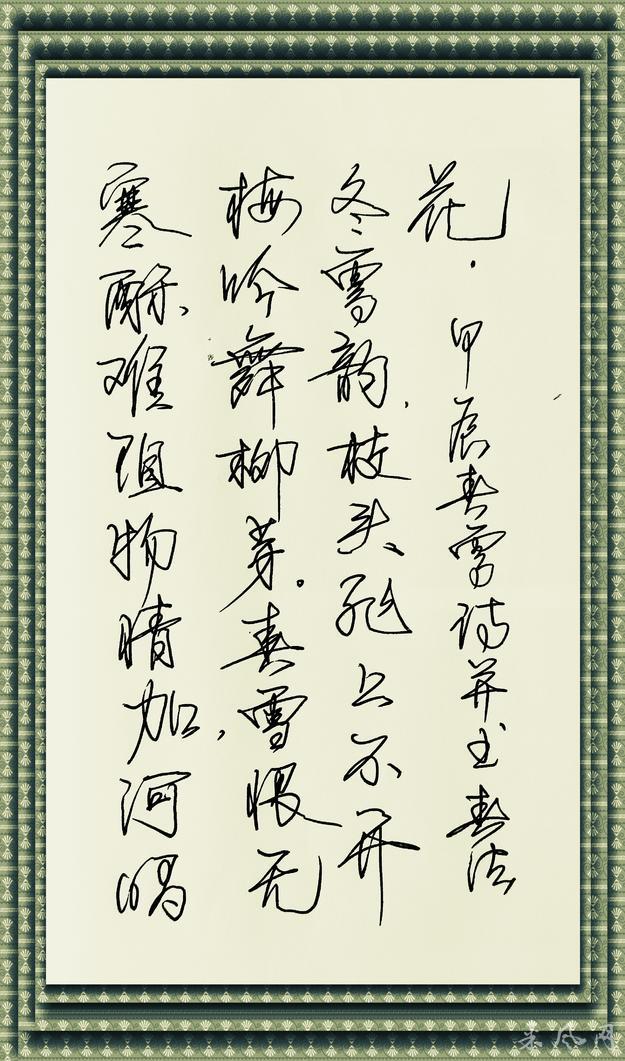 寒酥难阻物晴加,河唱
梅吟舞柳芽。春雪恨无
冬雪韵,枝头上不开
花.甲辰春雪诗并书春法
采风网